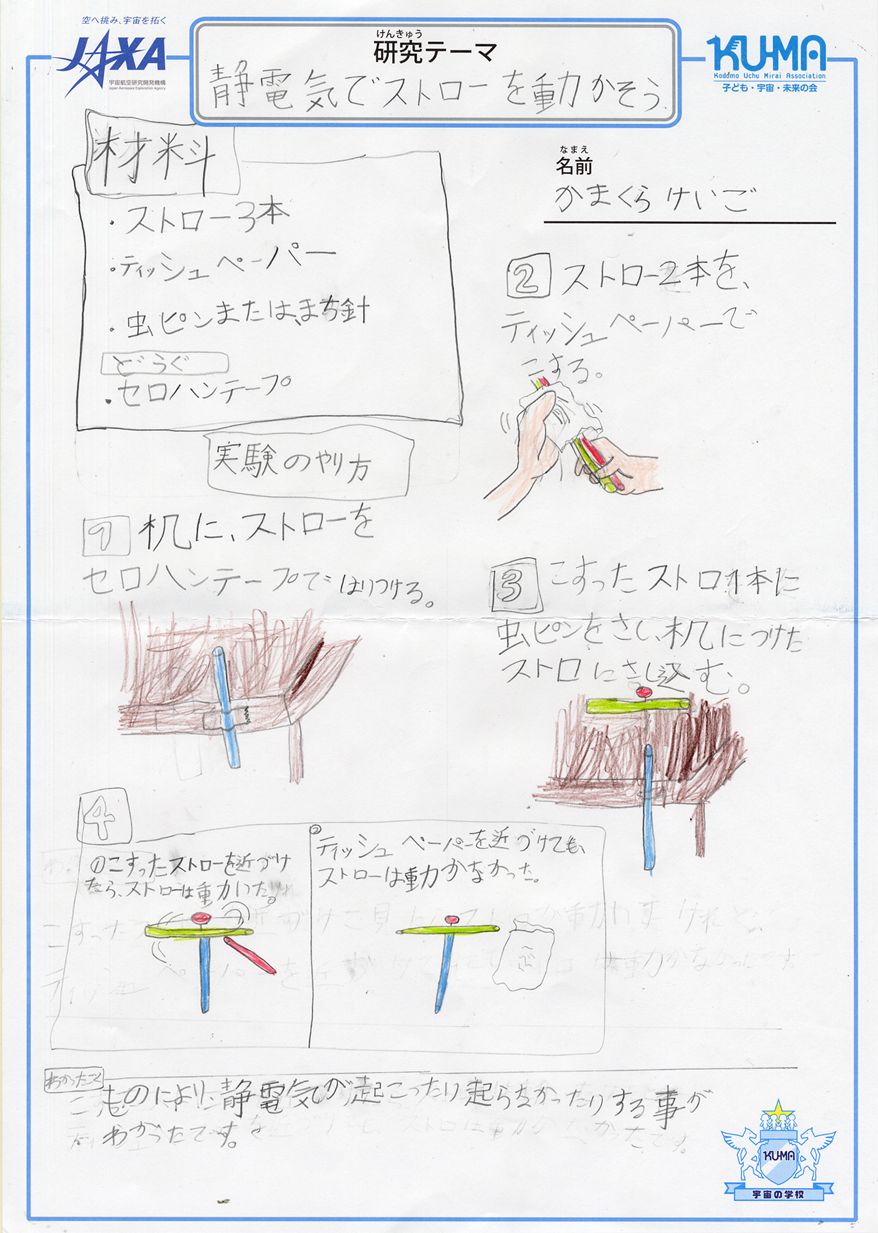 空へ挑み、宇宙を拓く
JAXA
宇宙航空研究開発機構
Japan Aerospace Exploration Agency
けんきゅう
研究テーマ
静電気でストローを動かそう.
KU-MA
Kodomo Uchu Mirai Association
子ども・宇宙・未来の会
なまえ
名前
かまくらけいご
材料
・ストロー3本
・ティッシュペーパー
・虫ピンまたは、まち針
どうぐ
・セロハンテープ
実験のやり方
1 机に、ストローを
セロハンテープではりつける。
2 ストロー2本を、
ティッシュペーパーで
こする。
3 こすったストロ1本に
虫ピンをさし、机につけた
ストロにさし込む。
4
①こすったストローを近づけ
たら、ストローは動いた。
②ティッシュペーパーを近づけても、
ストローは動かなかった。
わかったこと
ものにより、静電気が起こったり起らなかったりする事が
わかったです。
KUMA
宇宙の学校